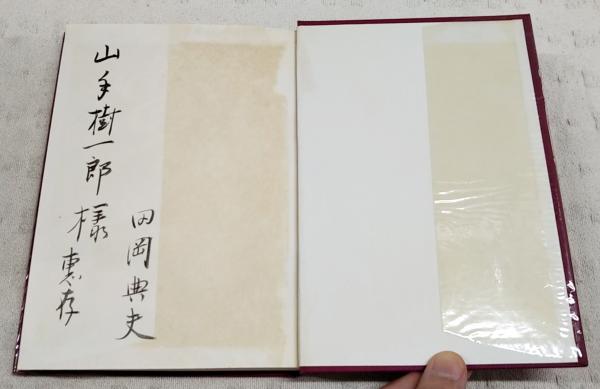 山手樹一郎様恵存
田岡典夫